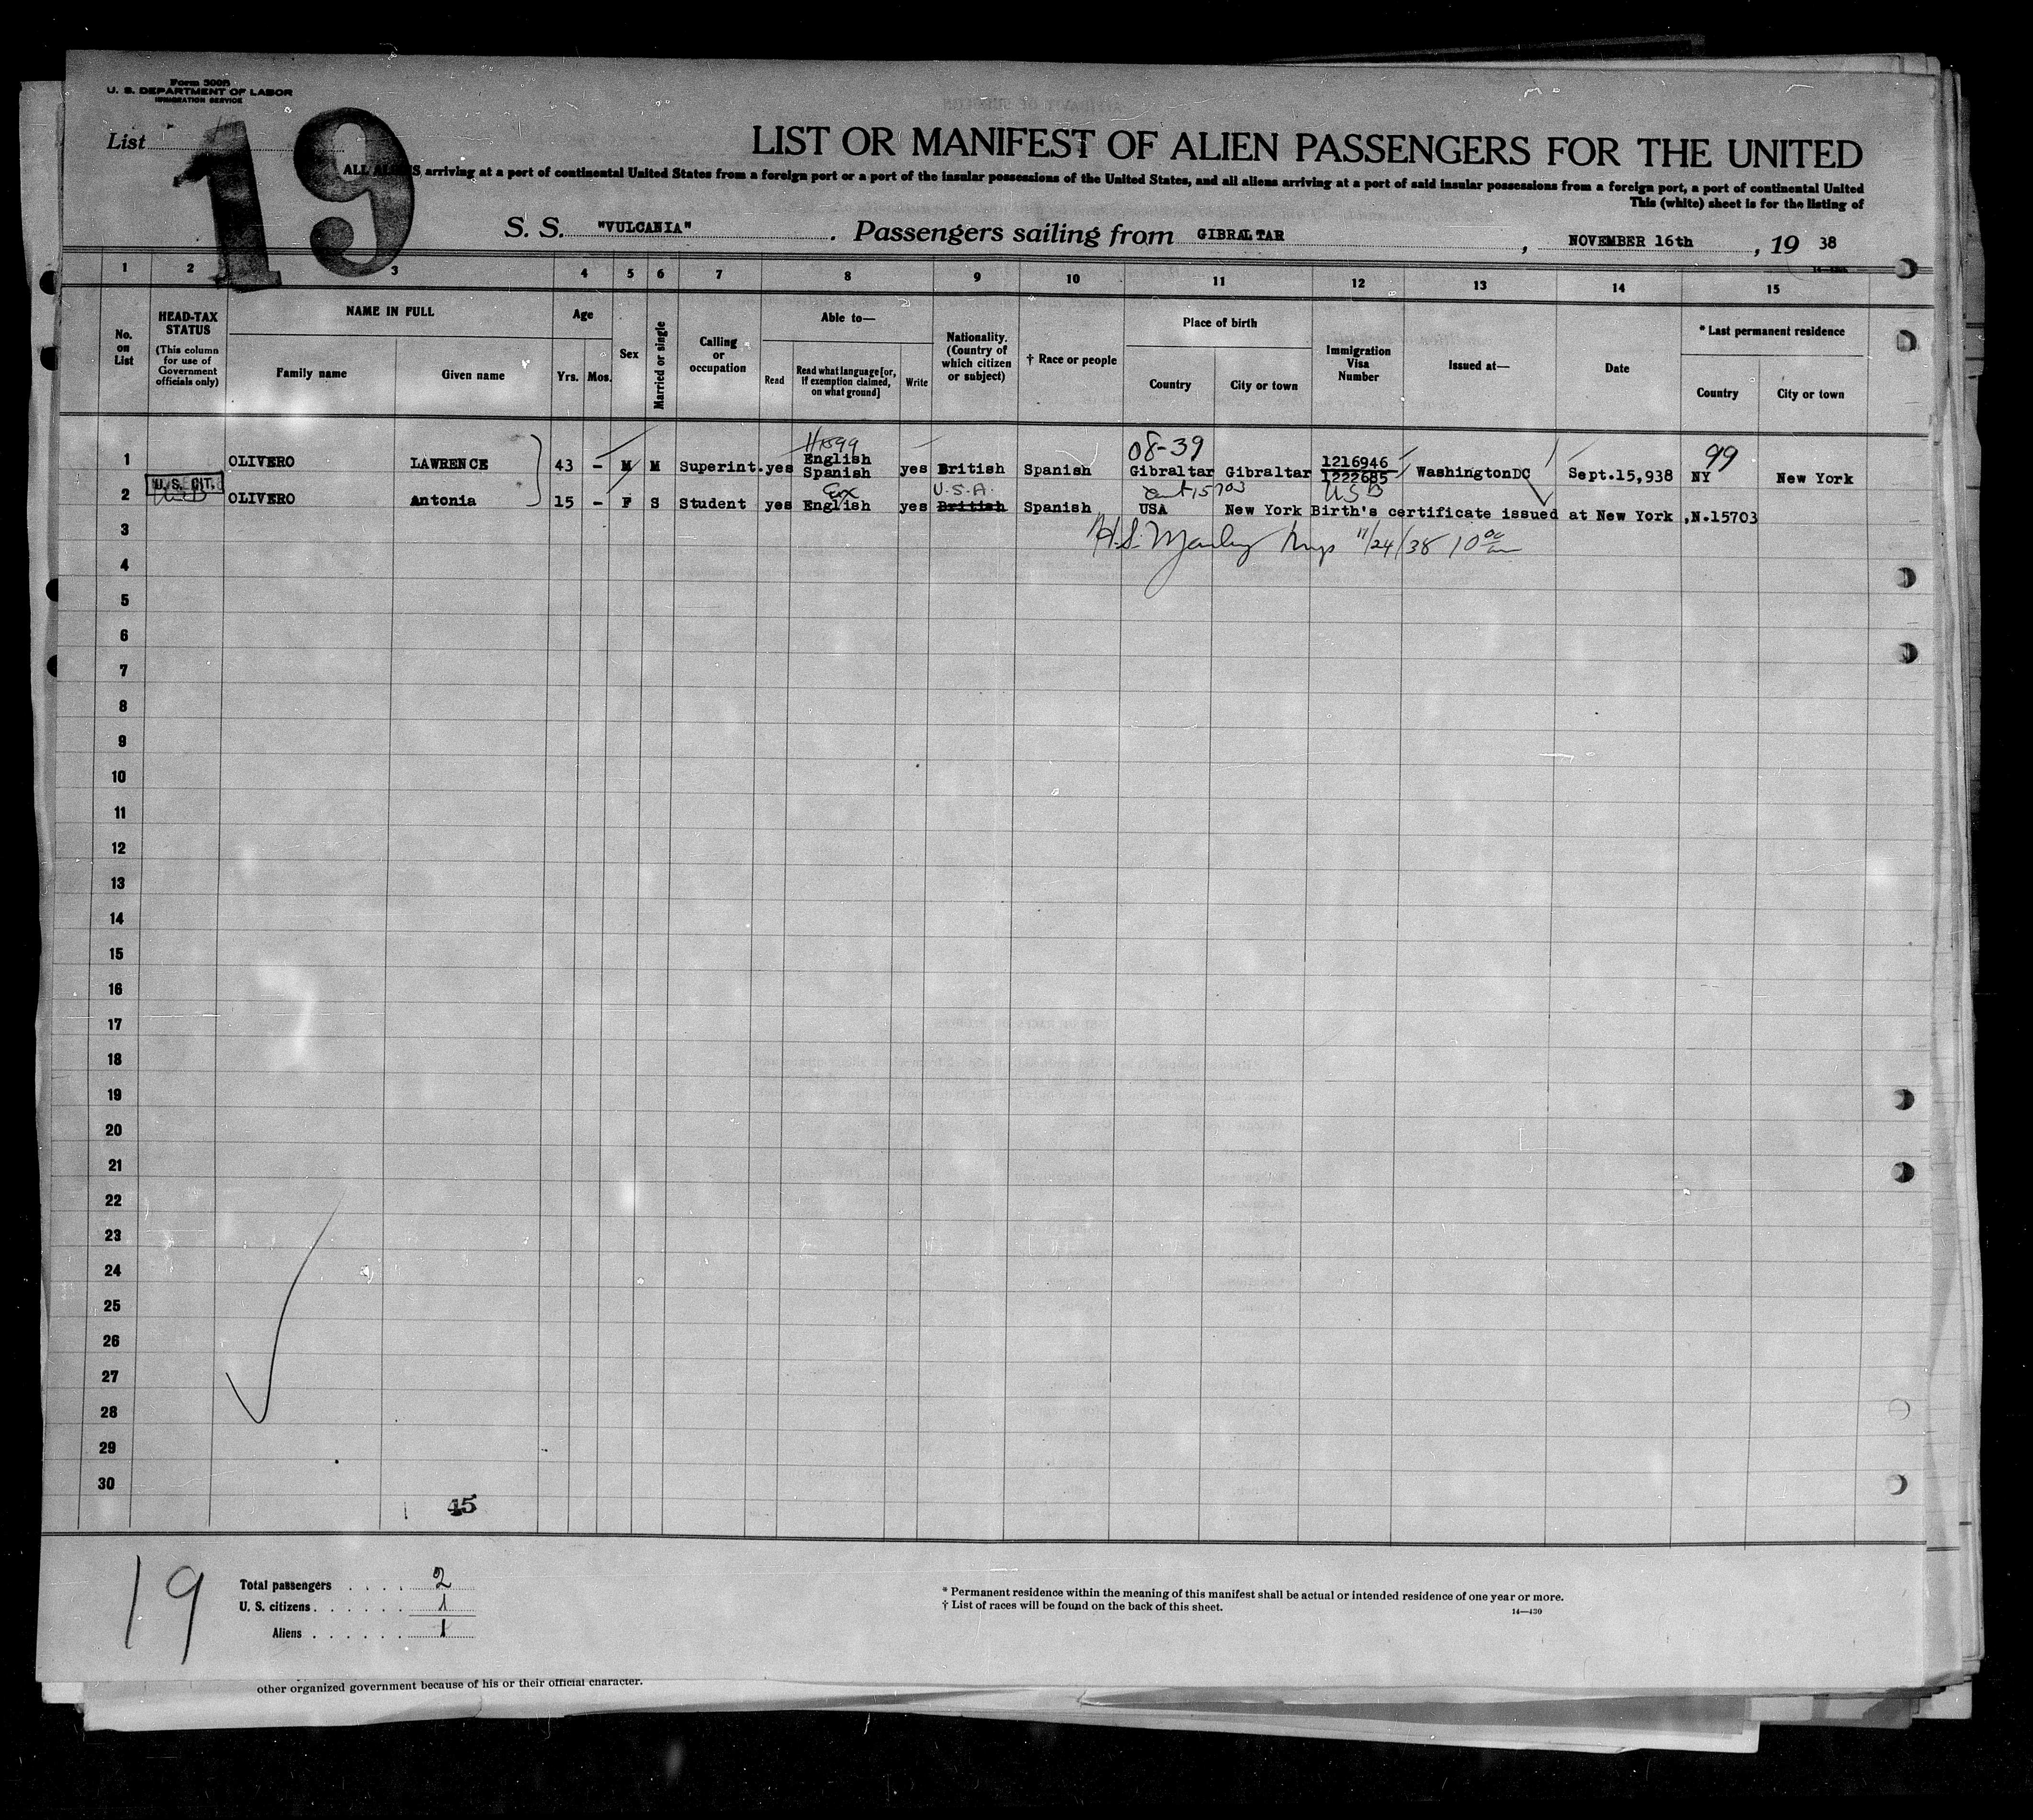 Form 500B
U. S. DEPARTMENT OF LABOR
IMMIGRATION SERVICE
List 19
LIST OR MANIFEST OF ALIEN PASSENGERS FOR THE UNITED
ALL ALIENS arriving at a port of continental United States from a foreign port or a port of the insular possessions of the United States, and all aliens arriving at a port of said insular possessions from a foreign port, a port of continental United
This (white) sheet is for the listing of
S. S. "VULCANIA" . Passengers sailing from GIBRALTAR , NOVEMBER 16th , 19 38
1 2 3 4 5 6 7 8 9 10 11 12 13 14 15
No. on List
HEAD-TAX STATUS
(This column for use of Government officials only)
NAME IN FULL
Family name
Given name
Age
Yrs. Mos.
Sex
Married or single
Calling or occupation
Able to—
Read
Read what language [or, if exemption claimed, on what ground]
Write
Nationality. (Country of which citizen or subject)
† Race or people
Place of birth
Country
City or town
Immigration Visa Number
Issued at—
Date
* Last permanent residence
Country
City or town
08-39
99
1 OLIVERO LAWRENCE 43 – M M Superint. yes English Spanish yes British Spanish Gibraltar Gibraltar 1216946 1222685 WashingtonDC Sept.15,938 NY New York
U. S. CIT.
U.S.A.
15703
USB
2 OLIVERO Antonia 15 – F S Student yes English yes British Spanish USA New York Birth's certificate issued at New York ,N.15703
3
H.S. Manley 11/24/38 10 00
4
5
6
7
8
9
10
11
12
13
14
15
16
17
18
19
20
21
22
23
24
25
26
27
28
29
30
45
19
Total passengers . . . . 2
U. S. citizens . . . . . . 1
Aliens . . . . . . 1
* Permanent residence within the meaning of this manifest shall be actual or intended residence of one year or more.
† List of races will be found on the back of this sheet.
14—430
other organized government because of his or their official character.